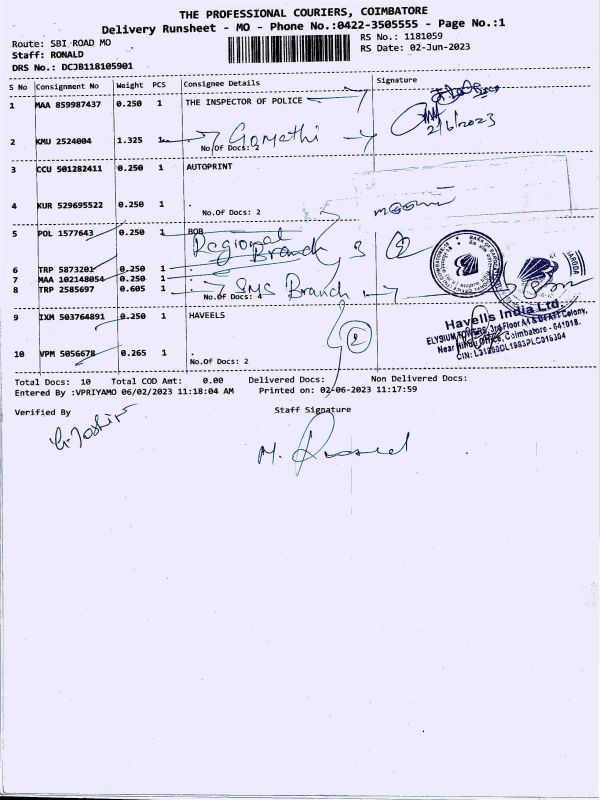 THE PROFESSIONAL COURIERS, COIMBATORE
Delivery Runsheet - MO - Phone No.:0422-3505555 - Page No.:1
Route: SBI ROAD MO
RS No.: 1181059
Staff: RONALD
RS Date: 02-Jun-2023
DRS No.: DCJB118105901
S No Consignment No Weight PCS Consignee Details Signature
1 MAA 859987437 0.250 1 THE INSPECTOR OF POLICE
2/6/2023
2 KMU 2524004 1.325 1 Gomathi
No.Of Docs: 2
3 CCU 501282411 0.250 1 AUTOPRINT
4 KUR 529695522 0.250 1 .
No.Of Docs: 2
5 POL 1577643 0.250 1 BOB
Regional
Branch 3 2
6 TRP 5873201 0.250 1 .
7 MAA 102148054 0.250 1 .
8 TRP 2585697 0.605 1 . SMS Branch
No.Of Docs: 4
9 IXM 503764891 0.250 1 HAVEELS
Havells India Ltd.
ELYSIUM TOWERS, 3rd Floor
Colony,
Near Hindu Office, Coimbatore - 641018.
2
10 VPM 5056678 0.265 1 .
No.Of Docs: 2
Total Docs: 10 Total COD Amt: 0.00 Delivered Docs: Non Delivered Docs:
Entered By :VPRIYAMO 06/02/2023 11:18:04 AM Printed on: 02-06-2023 11:17:59
Verified By Staff Signature